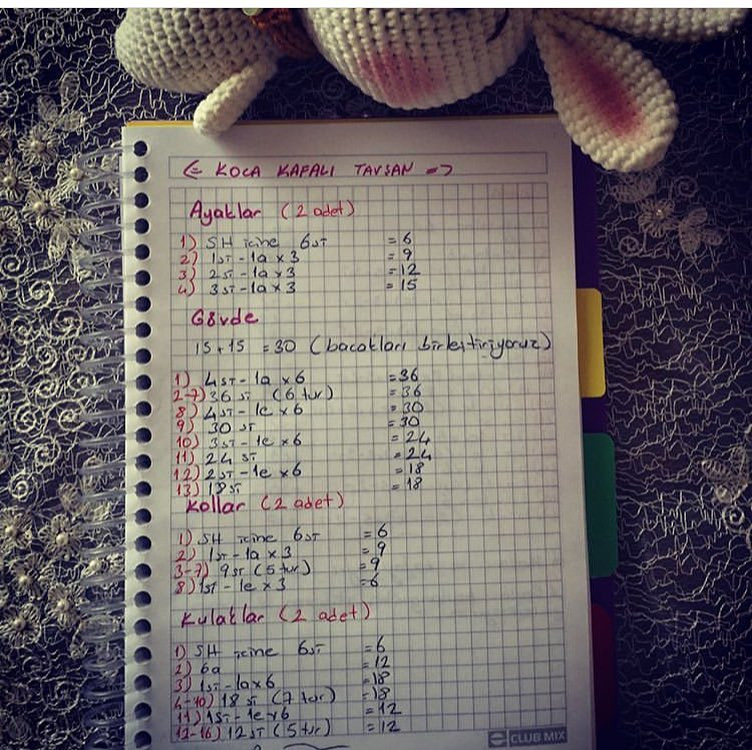 <= KOCA KAFALI TAVŞAN =>
Ayaklar (2 adet)
1) SH içine 6sı = 6
2) 1sı - 1a x 3 = 9
3) 2sı - 1a x 3 = 12
4) 3sı - 1a x 3 = 15
Gövde
15 + 15 = 30 (bacakları birleştiriyoruz)
1) 4sı - 1a x 6 = 36
2-7) 36 sı (6 tur) = 36
8) 4sı - 1e x 6 = 30
9) 30 sı = 30
10) 3sı - 1e x 6 = 24
11) 24 sı = 24
12) 2sı - 1e x 6 = 18
13) 18sı = 18
Kollar (2 adet)
1) SH içine 6sı = 6
2) 1sı - 1a x 3 = 9
3-7) 9sı (5 tur) = 9
8) 1sı - 1e x 3 = 6
Kulaklar (2 adet)
1) SH içine 6sı = 6
2) 6a = 12
3) 1sı - 1a x 6 = 18
4-10) 18 sı (7 tur) = 18
11) 1sı - 1e x 6 = 12
12-16) 12sı (5 tur) = 12
e CLUB MIX